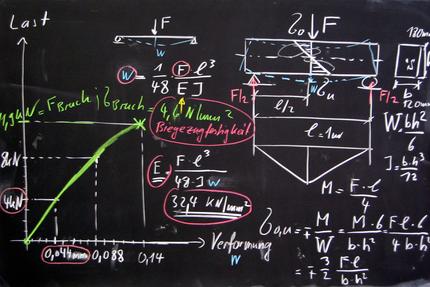 Last
F
w
w = 1/48 · F·l³/EJ
F Bruch ; б Bruch = 4,6 N/mm²
Biegezugfestigkeit
8kN
4kN
E = F·l³/48·J·w
32,4 kN/mm²
0,044mm
0,088
0,14
Verformung
w
бo
F
бu
F/2
F/2
l/2
l = 1m
120mm
b
W = bh²/6
J = b·h³/12
M = F·l/4
бo,u = ∓ M/W = M·6/b·h² = F·l·6/4·b·h²
= ∓ 3/2 F·l/b·h²